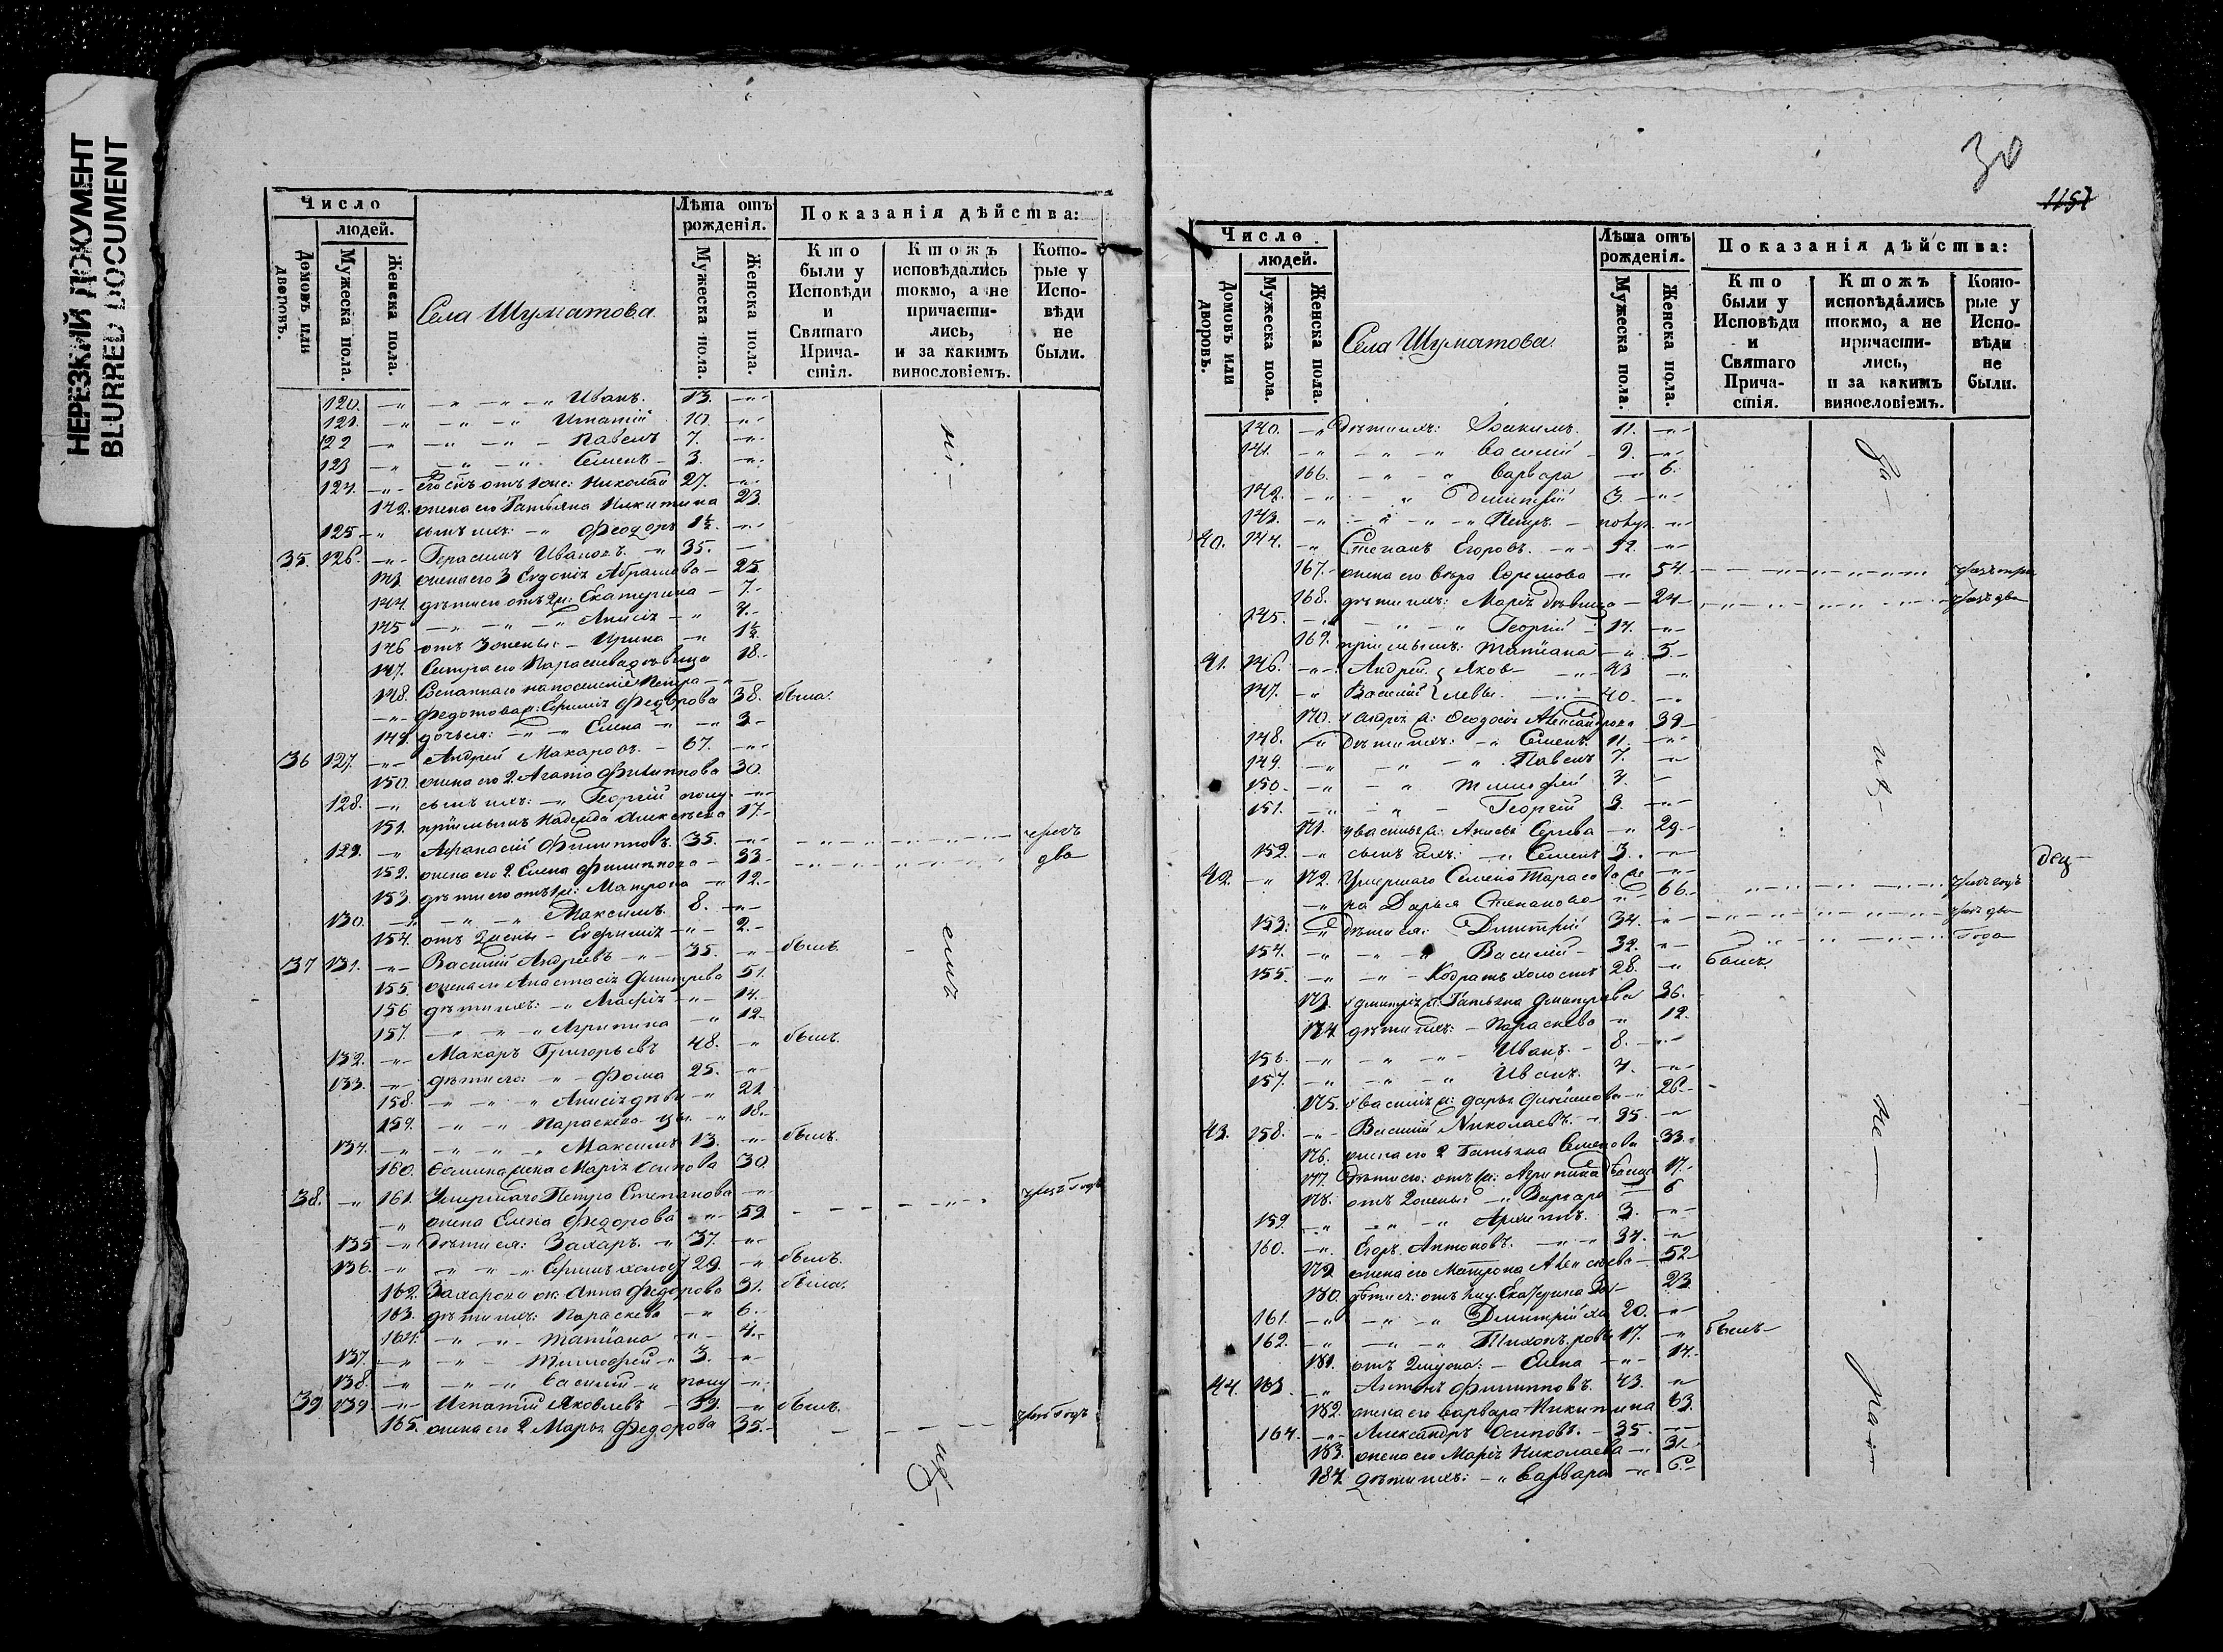 НЕРЕЗКИЙ ДОКУМЕНТ
BLURRED DOCUMENT
Число
людей.
Домовъ или дворовъ.
Мужеска пола.
Женска пола.
Села Шуматова.
Лѣта отъ рожденія.
Мужеска пола.
Женска пола.
Показанія дѣйства:
Кто были у Исповѣди и Святаго Причастія.
Ктожъ исповѣдались токмо, а не причастились, и за какимъ винословіемъ.
Которые у Исповѣди не были.
120. Иванъ. 13.
121. Игнатій 10.
122 Павелъ 7.
123 Семенъ 3.
124. Николай 27.
142. жена его Татьяна Никитина 23.
125 сынъ ихъ: Феодоръ 1½.
35. 126. Герасимъ Ивановъ. 35.
143. жена его 3 Евдокія Абрамова 25
144. дѣти его отъ 2 ж: Екатерина 7.
145 Анисія 4.
146 отъ 3 жены: Ирина 1½.
147. Сестра его Параскева дѣвица 18.
148. Петра
Федотова ж: Ефимія Федорова 38. была.
149. дочь ея: Елена 3
36 127. Андрей Макаровъ. 67.
150. жена его 2. Агафія Филиппова 30.
128. сынъ ихъ: Георгій полу.
151. пріимышъ Надежда Алексѣева 17.
129. Афанасій Филипповъ. 35. чрезъ
152. жена его 2. Елена Филиппова 33 два
153. дѣти его отъ 1 ж: Матрона 12.
130. Максимъ. 8.
154. отъ 2 жены Евфимія 2.
37 131. Василій Андреевъ 35. былъ.
155. жена его Анастасія Дмитрева 51.
156 дѣти ихъ: Агафія 14.
157. Агрипина 12.
132. Макаръ Григорьевъ 48. былъ.
133. дѣти его: Фома 25.
158. Анисія дѣви 21
159. Параскева 18.
134. Максимъ 13. былъ.
160. Фомина жена Марія Осипова 30.
38. 161. Умершаго Петра Степанова
жена Елена Федорова 59 чрезъ годъ
135 дѣти ея: Захаръ. 37.
136. Ефимъ холос 29. былъ.
162. Захарова ж: Анна Федорова 31. была.
163. дѣти ихъ: Параскева 6.
164. Татіана 4.
137. Тимофей 3.
138. Василій полу
39 139 Игнатій Яковлевъ 39. былъ.
165. жена его 2 Марья Федорова 35. чрезъ годъ
30
1157
Число
людей.
Домовъ или дворовъ.
Мужеска пола.
Женска пола.
Села Шуматова.
Лѣта отъ рожденія.
Мужеска пола.
Женска пола.
Показанія дѣйства:
Кто были у Исповѣди и Святаго Причастія.
Ктожъ исповѣдались токмо, а не причастились, и за какимъ винословіемъ.
Которые у Исповѣди не были.
140. Дѣти ихъ: 11.
141. Василій 9.
166. Варвара 6.
142. Дмитрій 3.
143. Петръ полу.
40. 144. Степанъ Егоровъ. 52.
167. жена его Вѣра Ефремова 54. чрезъ три
168. дѣти ихъ: Марія дѣвица 24 чрезъ два
145. Георгій 14.
169. пріимышъ: Татіана 5.
41. 146. Андрей Яков- 43
147. Василій левы. 40.
170. у Андрея ж: Феодосія Александрова 39
148. Дѣти ихъ: Семенъ. 11.
149. Павелъ 7.
150. Тимофей 4.
151. Георгій 3.
171. у Василья ж: Анисья Сергева 29.
152. сынъ ихъ: Семенъ 3.
42. 172. Умершаго Семена Тарасова же
на Дарья Степанова 66. чрезъ годъ
153. Дѣти ея: Дмитрій 34. чрезъ два
154. Василій 32. года
155. Кодратъ холостъ 28. былъ.
173. у Дмитрія ж: Татьяна Дмитрева 36.
174 дѣти ихъ: Параскева 12.
156. Иванъ. 8.
157. Иванъ. 4.
175. у Василія ж: Дарья 26.
43. 158. Василій Николаевъ. 35.
176. жена его 2 Татьяна Семенова 33.
177. Дѣти его: отъ 1 ж: Агрипина дѣвица 17.
178. отъ 2 жены: Варвара 6
159. Архипъ. 3.
160. Егоръ Антоновъ. 37.
179. жена его Матрона Алексѣева 52
180. дѣти ея: отъ 1 му. Екатерина 23
161. Дмитрій хо 20.
162. Тихонъ 17. былъ
181. отъ 2 мужа: Елена 14.
44. 163. Антонъ Филипповъ. 43.
182. жена его Варвара Никитина 63.
164. Александръ Осиповъ. 35.
183. жена его Марія Николаева 31.
184. дѣти ихъ: Варвара 6.